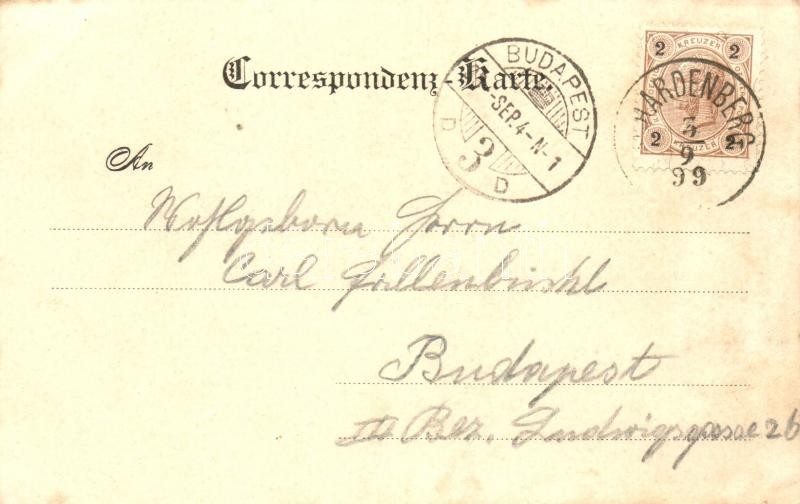 Correspondenz-Karte.
BUDAPEST
-SEP. 4-N-1
D 3 D
2 KREUZER 2
2 KREUZER 2
HARDENBERG
3
9
99
An
Wohlgeborn Herrn
Carl
Budapest
III Bez. Ludwigsgasse 26